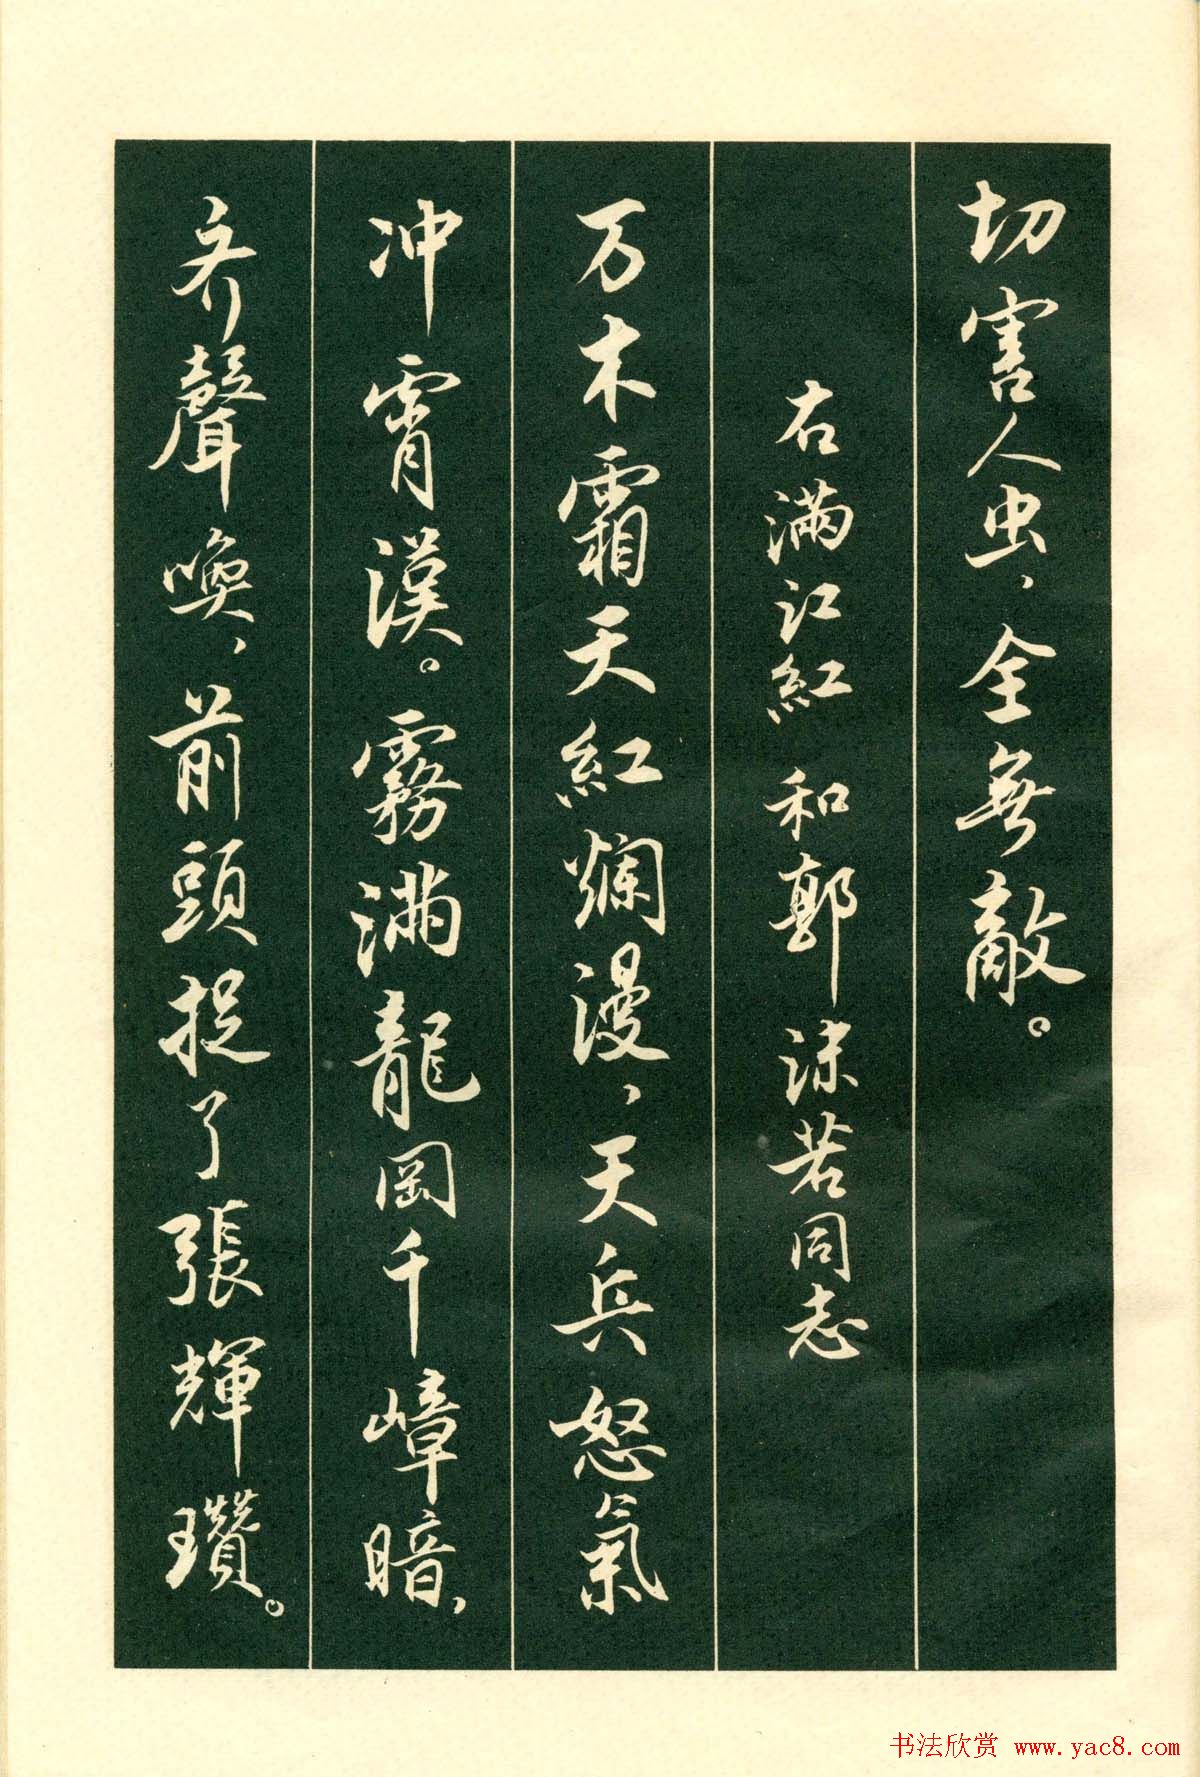 切害人虫，全無敵。
右滿江紅 和郭沫若同志
万木霜天紅爛漫，天兵怒氣
冲霄漢。霧滿龍岡千嶂暗，
齐聲喚，前頭捉了張輝瓚。
书法欣赏 www.yac8.com